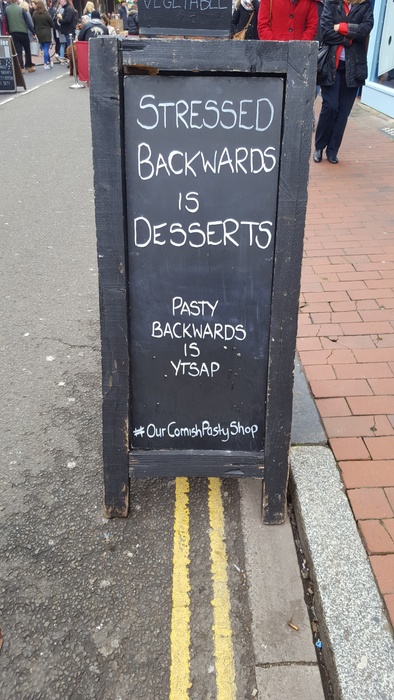 VEGETABLE
STRESSED
BACKWARDS
IS
DESSERTS
PASTY
BACKWARDS
IS
YTSAP
#OurCornishPastyShop